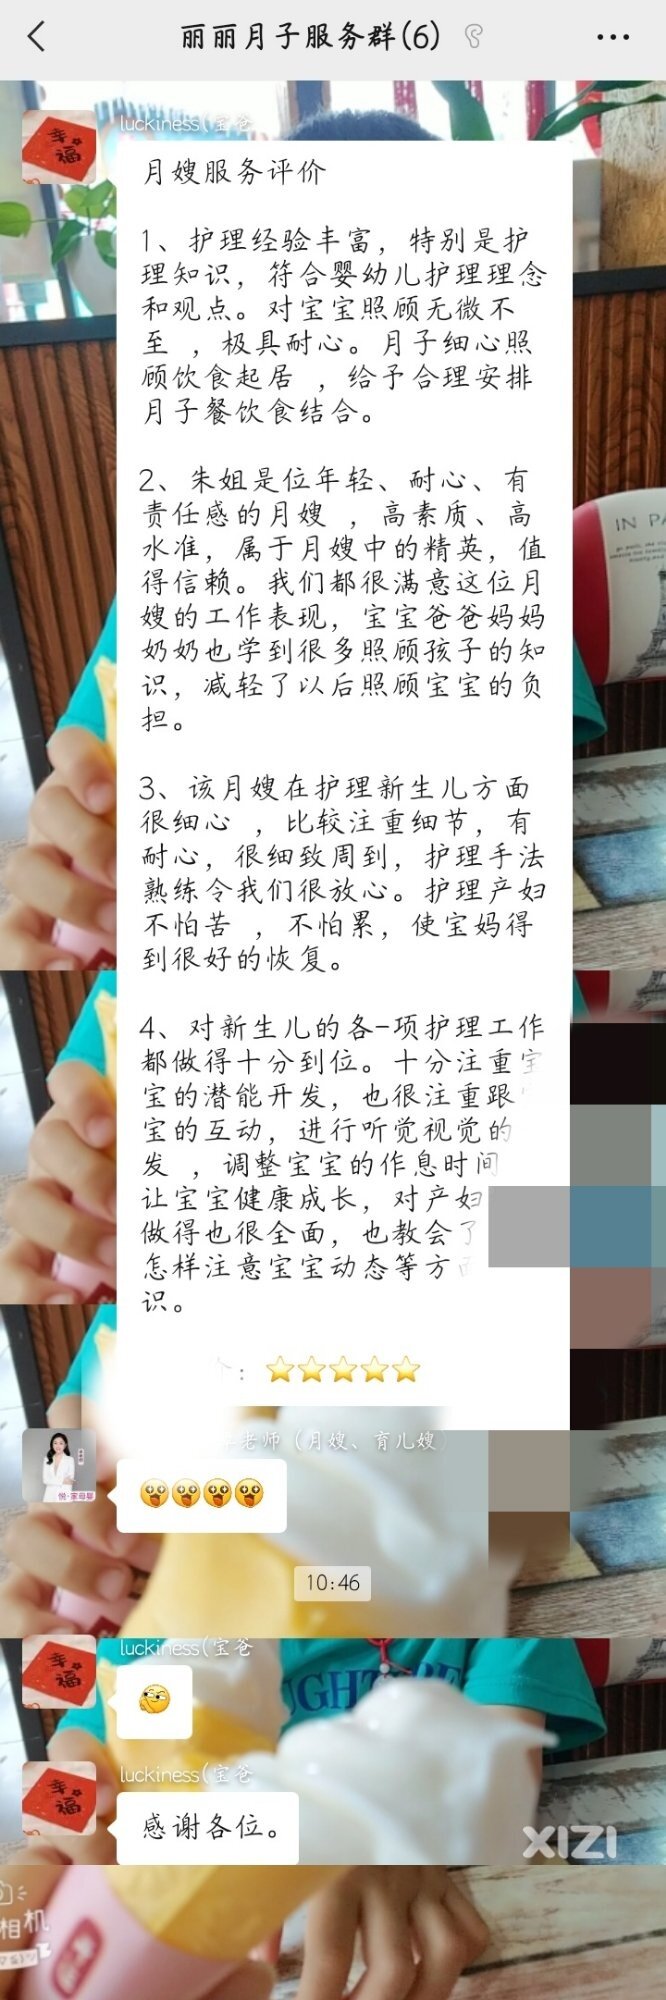 丽丽月子服务群(6)
luckiness(宝爸
月嫂服务评价
1、护理经验丰富，特别是护
理知识，符合婴幼儿护理理念
和观点。对宝宝照顾无微不
至 ，极具耐心。月子细心照
顾饮食起居 ，给予合理安排
月子餐饮食结合。
2、朱姐是位年轻、耐心、有
责任感的月嫂 ，高素质、高
水准，属于月嫂中的精英，值
得信赖。我们都很满意这位月
嫂的工作表现，宝宝爸爸妈妈
奶奶也学到很多照顾孩子的知
识，减轻了以后照顾宝宝的负
担。
3、该月嫂在护理新生儿方面
很细心 ，比较注重细节，有
耐心，很细致周到，护理手法
熟练令我们很放心。护理产妇
不怕苦 ，不怕累，使宝妈得
到很好的恢复。
4、对新生儿的各-项护理工作
都做得十分到位。十分注重宝
宝的潜能开发，也很注重跟
宝的互动，进行听觉视觉的
发 ，调整宝宝的作息时间
让宝宝健康成长，对产妇
做得也很全面，也教会了
怎样注意宝宝动态等方面
识。
：⭐⭐⭐⭐⭐
老师（月嫂、育儿嫂）
悦·家母婴
10:46
luckiness(宝爸
luckiness(宝爸
感谢各位。
幸福
IN PA
UGHT
XIZI
相机